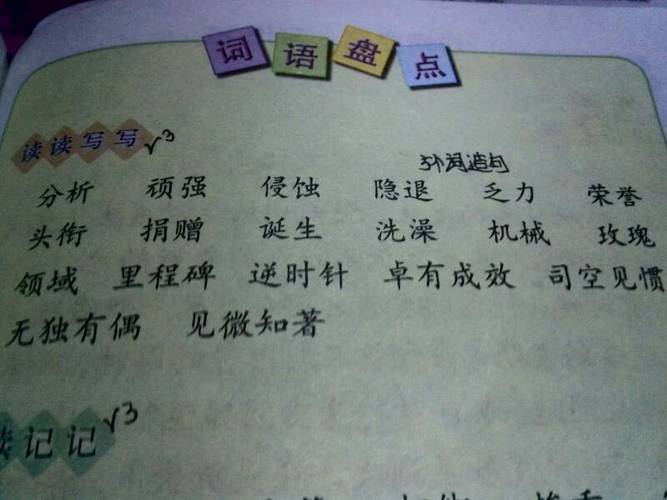 词语盘点
读读写写 √3
分析 顽强 侵蚀 隐退 乏力 荣誉
头衔 捐赠 诞生 洗澡 机械 玫瑰
领域 里程碑 逆时针 卓有成效 司空见惯
无独有偶 见微知著
记记 √3